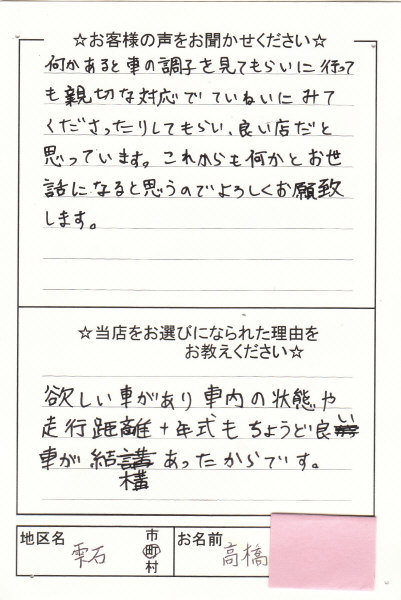 ☆お客様の声をお聞かせください☆
何かあると車の調子を見てもらいに行って
も親切な対応でていねいにみて
くださったりしてもらい、良い店だと
思っています。これからも何かとお世
話になると思うのでよろしくお願致
します。
☆当店をお選びになられた理由を
お教えください☆
欲しい車があり車内の状態や
走行距離+年式もちょうど良い
車が結構あったからです。
地区名 雫石 市町村 お名前 高橋